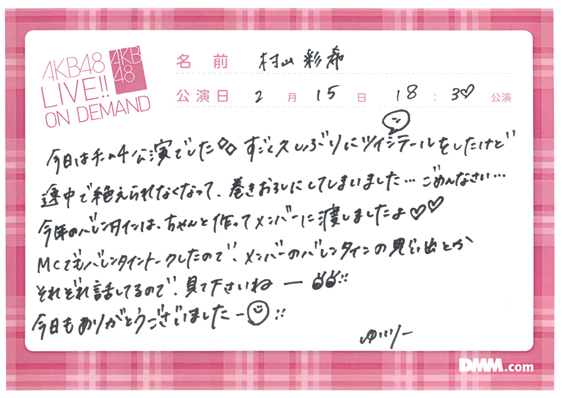 AKB48
LIVE!!
ON DEMAND
AKB
48
名前 村山彩希
公演日 2月15日 18:30公演
今日はチーム4公演でした すごく久しぶりにツインテールをしたけど
途中で絶えられなくなって、巻きおろしにしてしまいました…ごめんなさい…
今年のバレンタインは、ちゃんと作ってメンバーに渡しましたよ♡♡
MCでもバレンタイントークしたので、メンバーのバレンタインの思い出とか
それぞれ話してるので、見て下さいねー!!
今日もありがとうございましたー!!
ゆいりー
DMM.com